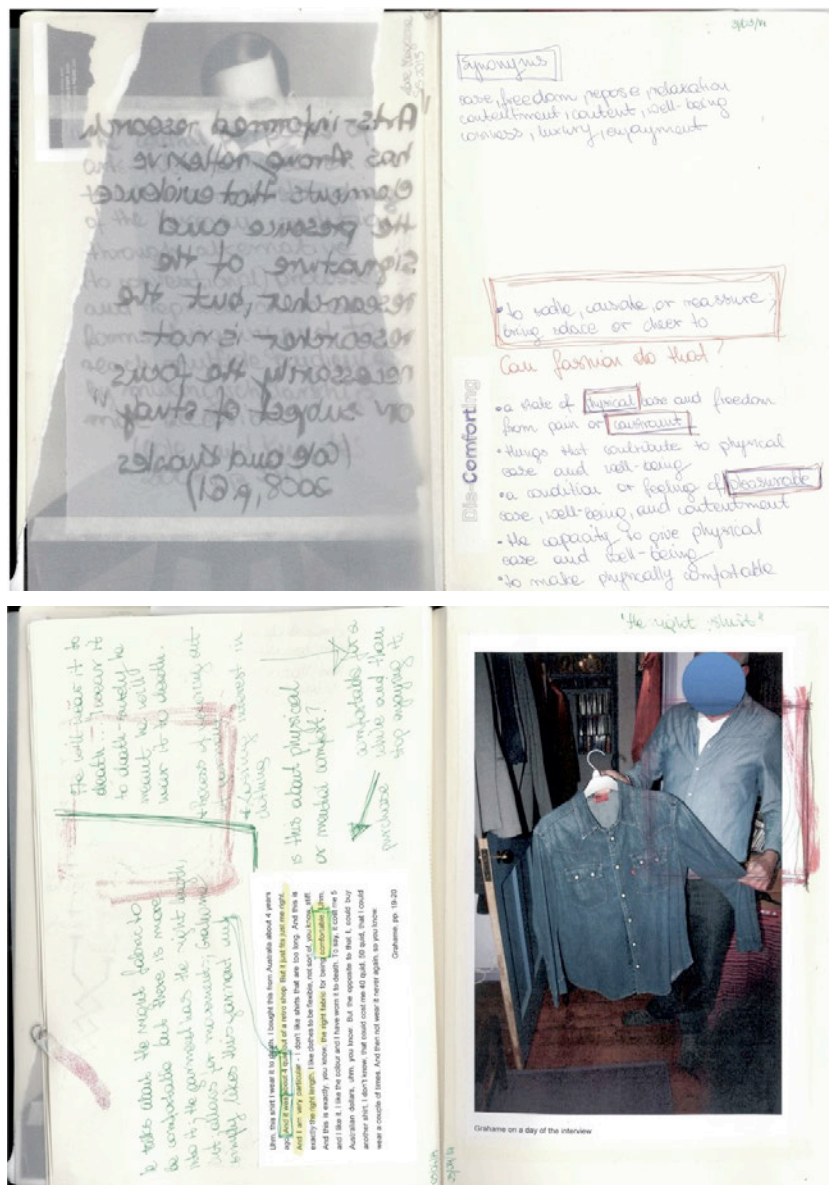 Love Magazine
SS 2013
"Arts-informed research
has strong reflexive
elements that evidence
the presence and
signature of the
researcher, but the
researcher is not
necessarily the focus
or subject of study"
(Cole and Knowles
2008, p.61)
Synonyms
ease, freedom, repose, relaxation
contentment, content, well-being
cosiness, luxury, enjoyment
• to soothe, console, or reassure;
bring solace or cheer to
Can fashion do that?
Dis-Comforting
• a state of physical ease and freedom
from pain or constraint
• things that contribute to physical
ease and well-being
• a condition or feeling of pleasurable
ease, well-being, and contentment
• the capacity to give physical
ease and well-being
• to make physically comfortable
He will wear it to
death... I wear it
to death - surely he
meant he will
wear it to death.
Process of wearing out
+ Losing interest in
clothing
is this about physical
or mental comfort?
comfortable for a
while and then
stop enjoying it
purchase
he talks about the right fabric to
be comfortable but there is more
into it; the garment has the right width,
cut, allows for movement; Grahame
simply likes this garment
Uhm, this shirt I wear it to death. I bought this from Australia about 4 years
ago. And it was about 4 quid out of a retro shop. But it just fits just me right.
And I am very particular - I don't like shirts that are too long. And this is
exactly the right length. I like clothes to be flexible, not sort of, you know, stiff.
And this is exactly, you know, the right fabric for being comfortable. Uhm,
and I like it. I like the colour and I have worn it to death. To say, it cost me 5
Australian dollars, uhm, you know. But the opposite to that I, could buy
another shirt, I don't know, that could cost me 40 quid, 50 quid, that I could
wear a couple of times. And then not wear it never again, so you know.
Grahame, pp. 19-20
'the right shirt'
Grahame on a day of the interview